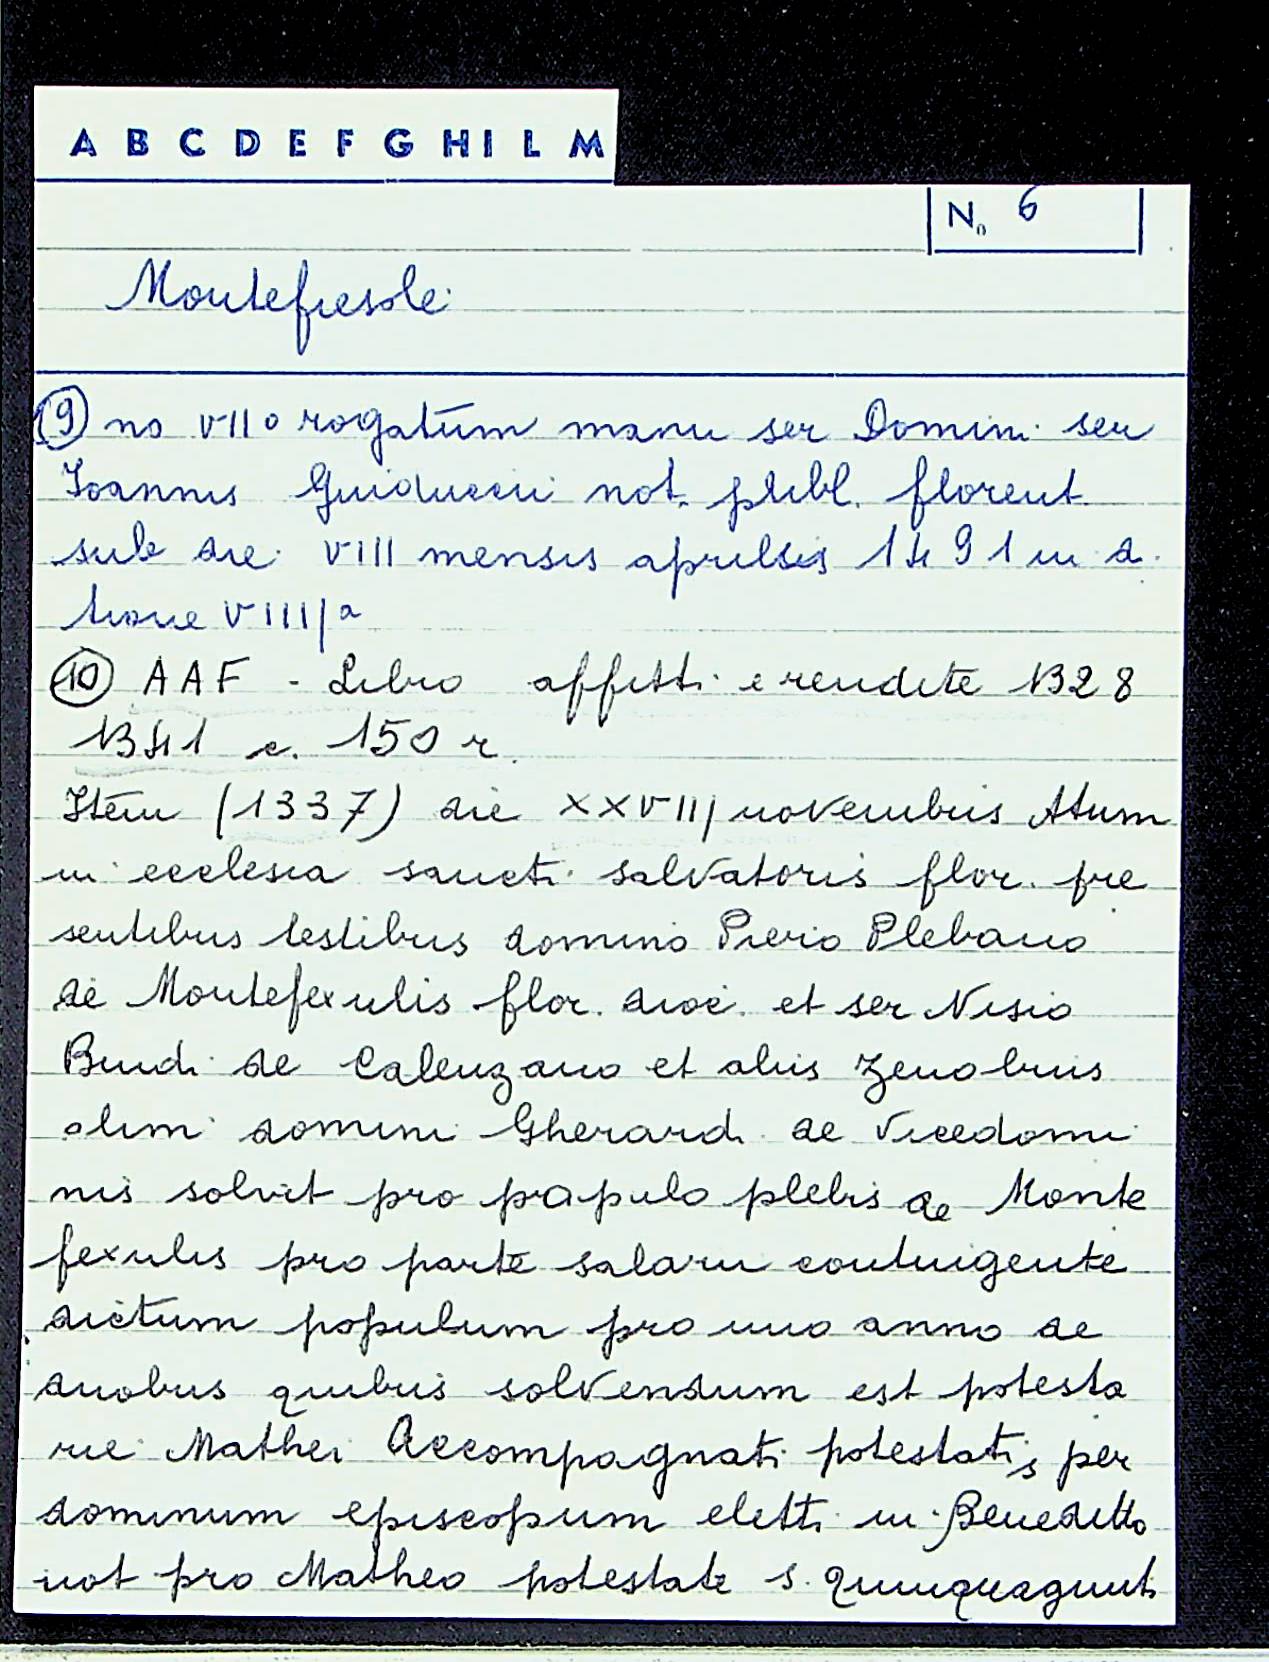 A B C D E F G H I L M
N. 6
Montefiesole
9 no VII o rogatum manu ser Domini ser
Ioannis Guiduccii not. publ. florent
sub die VIII mensis aprilis 1491 in d.
tione VIIIJa
10 A A F - Libro affitti e rendite 1328
1341 c. 150 r.
Item (1337) die XXVIIJ novembris Atum
in ecclesia sancti salvatoris flor. pre
sentibus testibus domino Piero Plebano
de Montefexulis flor. dioc. et ser Nisio
Bindi de Calenzano et aliis Zenobius
olim domini Gherardi de Vicedomi
nis solvit pro papulo plebis de Monte
fexulis pro parte salarii contingente
dictum populum pro uno anno de
duobus quibus solvendum est potesta
rie Mathei Accompagnati potestatis per
dominum episcopum eletti in Benedetto
not pro Matheo potestate s. quinquaginti